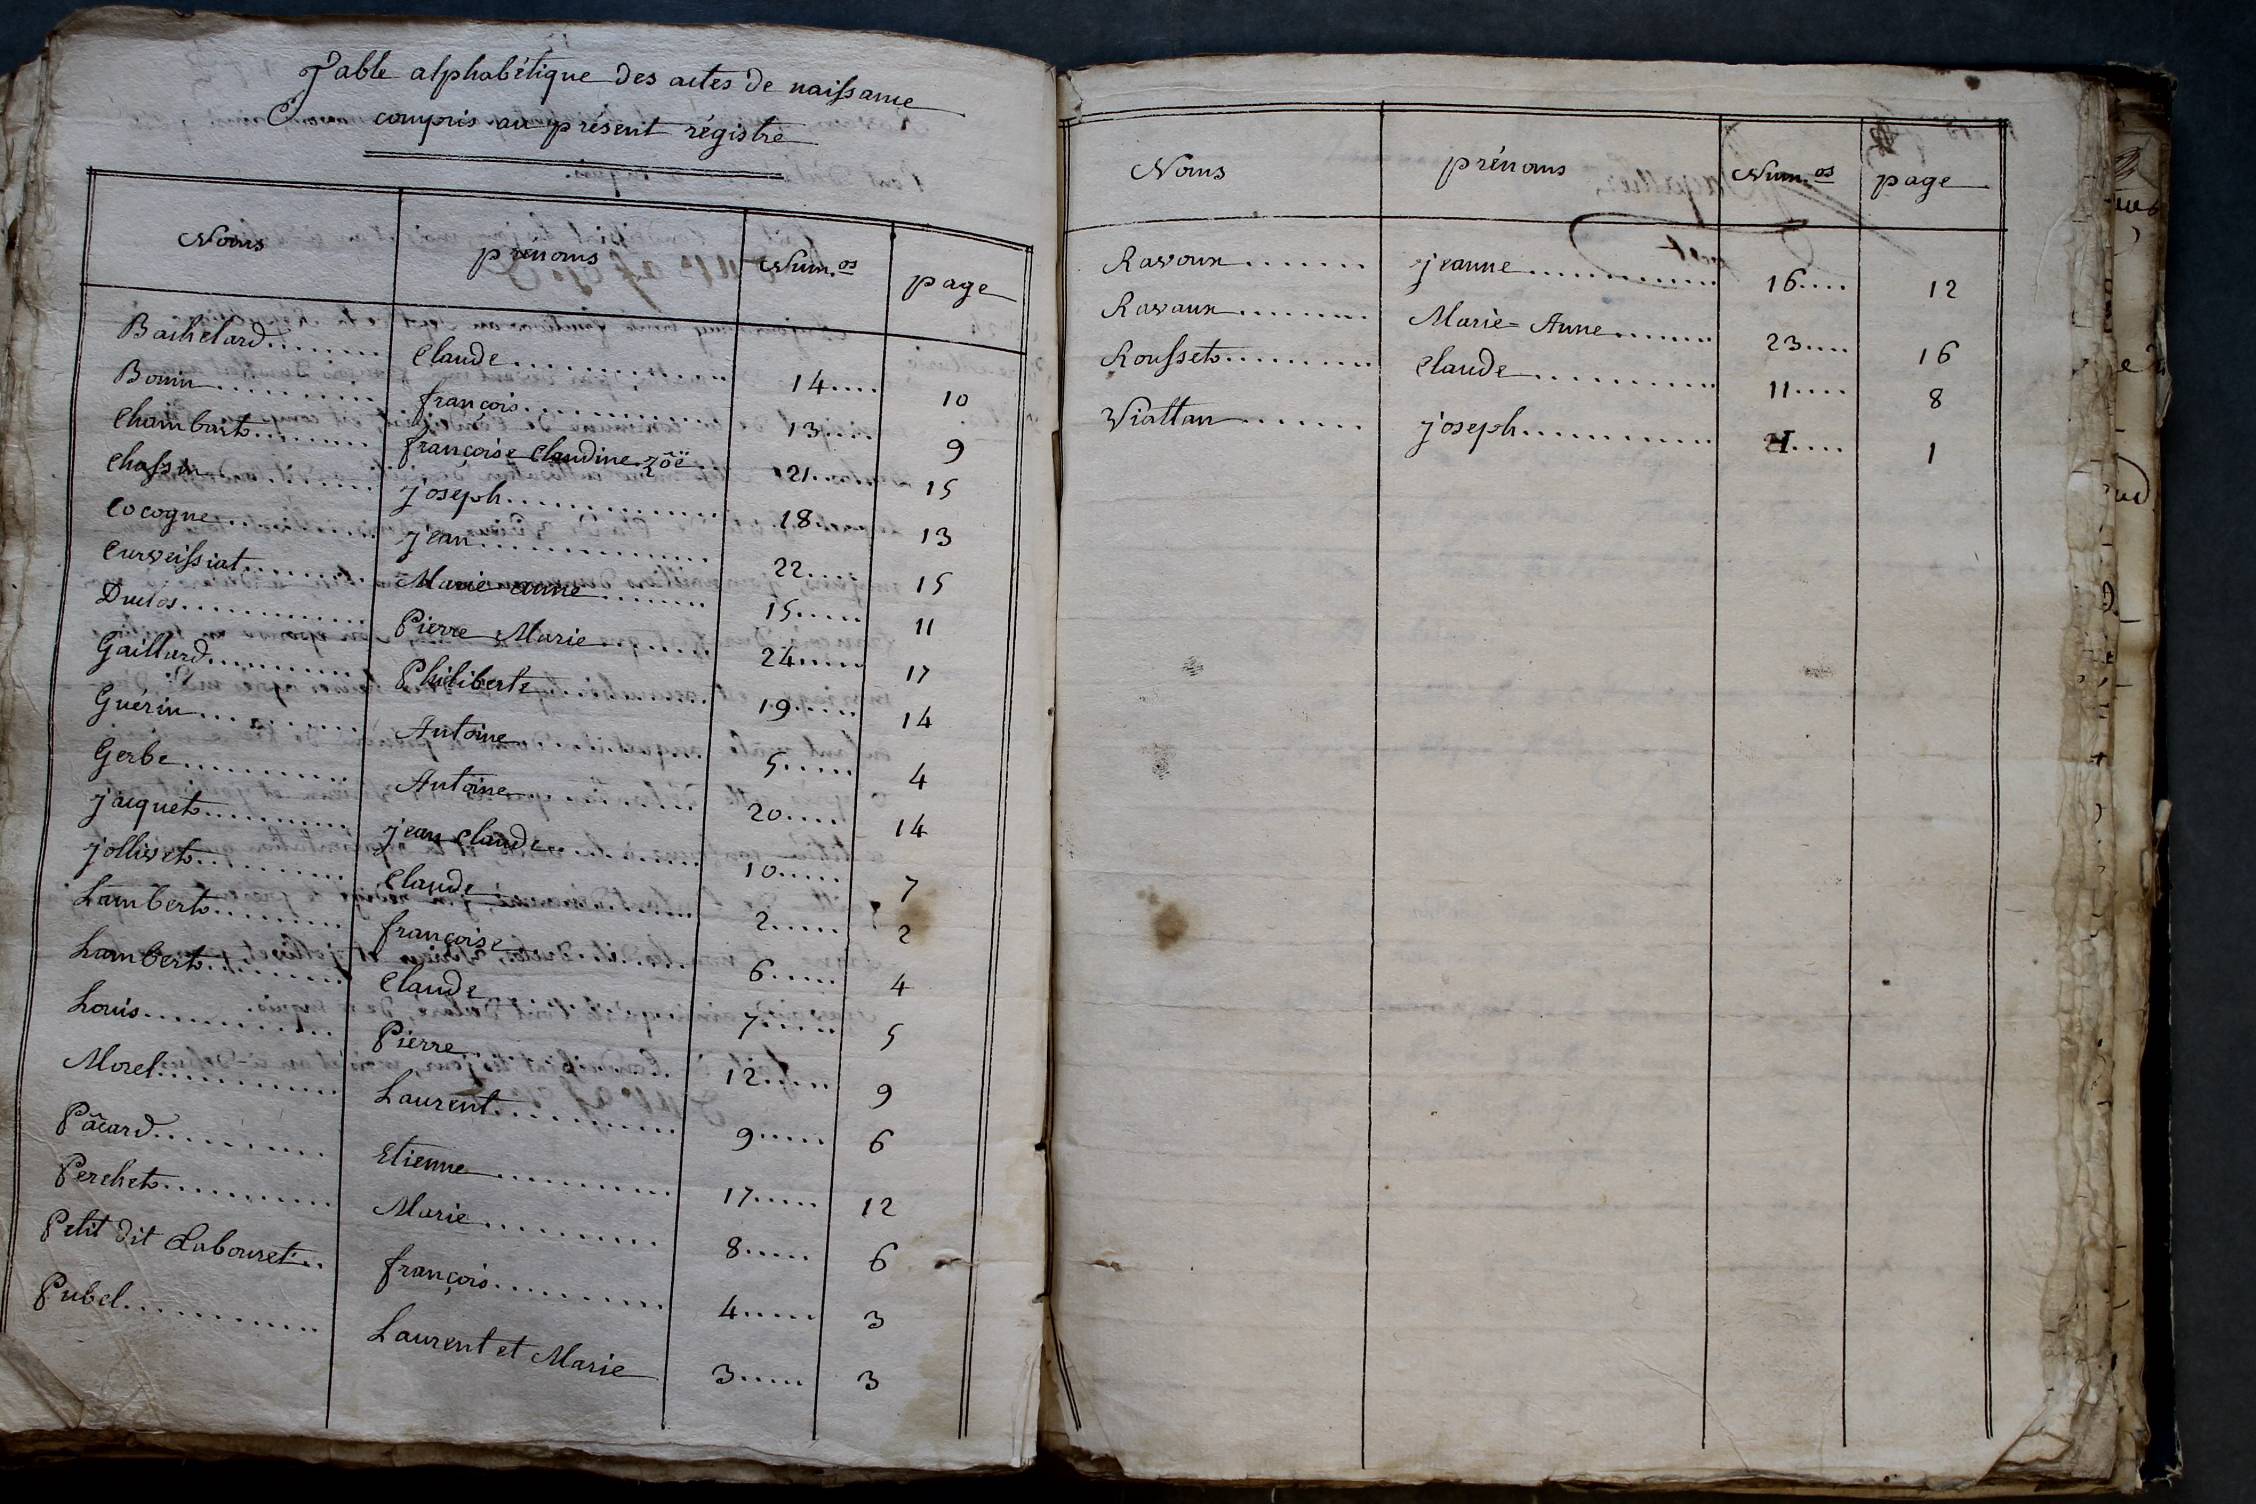 Table alphabétique des actes de naissance
compris au présent régistre
Noms prénoms Num.os page
Bachelard Claude 14 10
Bonin françois 13 9
Chambart françoise Claudine zôë 21 15
Chassin joseph 18 13
Cocogne jean 22 15
Curveissiat Marie anne 15 11
Duclos Pierre Marie 24 17
Gaillard Philiberte 19 14
Guérin Antoine 5 4
Gerbe Antoine 20 14
jacquet jean Claude 10 7
jollivet Claude 2 2
Lambert françoise 6 4
Lambert Claude 7 5
Louis Pierre 12 9
Morel Laurent 9 6
Pâcard Etienne 17 12
Perchet Marie 8 6
Petit dit Labouret françois 4 3
Pubel Laurent et Marie 3 3
Noms prénoms Num.os page
Ravoux jeanne 16 12
Ravaux Marie=Anne 23 16
Rousset Claude 11 8
Viallan joseph 1